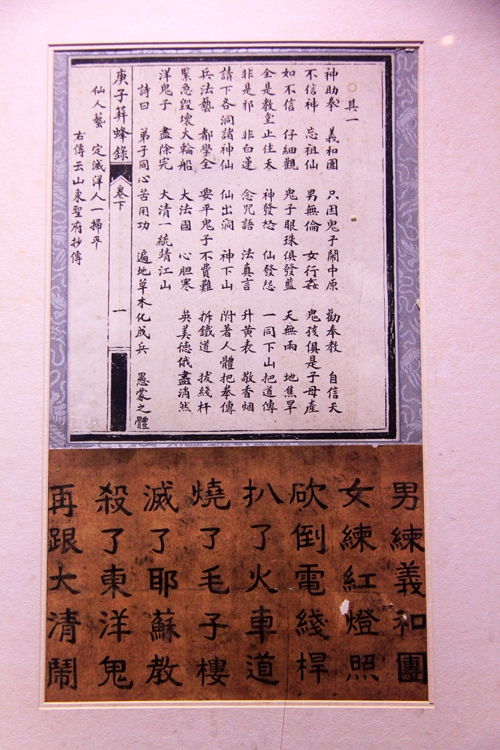 其一
神助拳 義和團 只因鬼子鬧中原 勸奉教 自信天
不信神 忘祖仙 男無倫 女行姦 鬼孩俱是子母產
如不信 仔細觀 鬼子眼珠俱發藍 天無雨 地焦旱
全是教堂止住天 神發怒 仙發怨 一同下山把道傳
非是邪 非白蓮 念咒語 法真言 升黃表 敬香烟
請下各洞諸神仙 仙出洞 神下山 附著人體把拳傳
兵法藝 都學全 要平鬼子不費難 拆鐵道 拔綫杆
緊急毀壞大輪船 大法國 心胆寒 英美德俄盡消然
洋鬼子 盡除完 大清一統靖江山
詩曰 弟子同心苦用功 遍地草木化成兵 愚蒙之體
庚子荓蜂錄 卷下 一
仙人藝 定滅洋人一掃平
右傳云山東聖府抄傳
男練義和團
女練紅燈照
砍倒電綫桿
扒了火車道
燒了毛子樓
滅了耶蘇教
殺了東洋鬼
再跟大清鬧